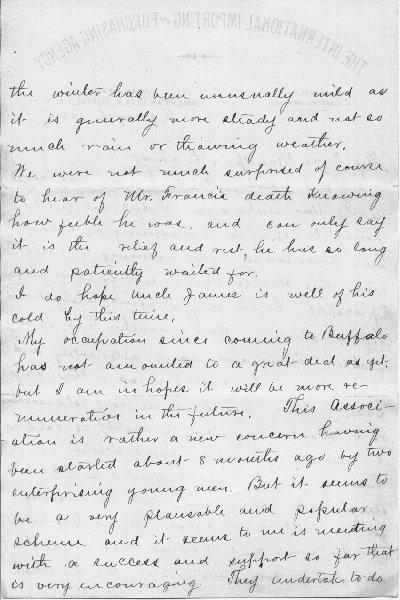 THE INTERNATIONAL IMPORTING AND PURCHASING AGENCY
the winter has been unusually mild as
it is generally more steady and not so
much rain or thawing weather.
We were not much surprised of course
to hear of Mr. Francis death knowing
how feeble he was, and can only say
it is the relief and rest, he has so long
and patiently waited for.
I do hope uncle James is well of his
cold by this time.
My occupation since coming to Buffalo
has not amounted to a great deal as yet,
but I am in hopes it will be more re-
munerative in the future. This Associ-
ation is rather a new concern having
been started about 8 months ago by two
enterprising young men. But it seems to
be a very plausable and popular
scheme and it seems to me is meeting
with a success and support so far that
is very encouraging. They undertake to do